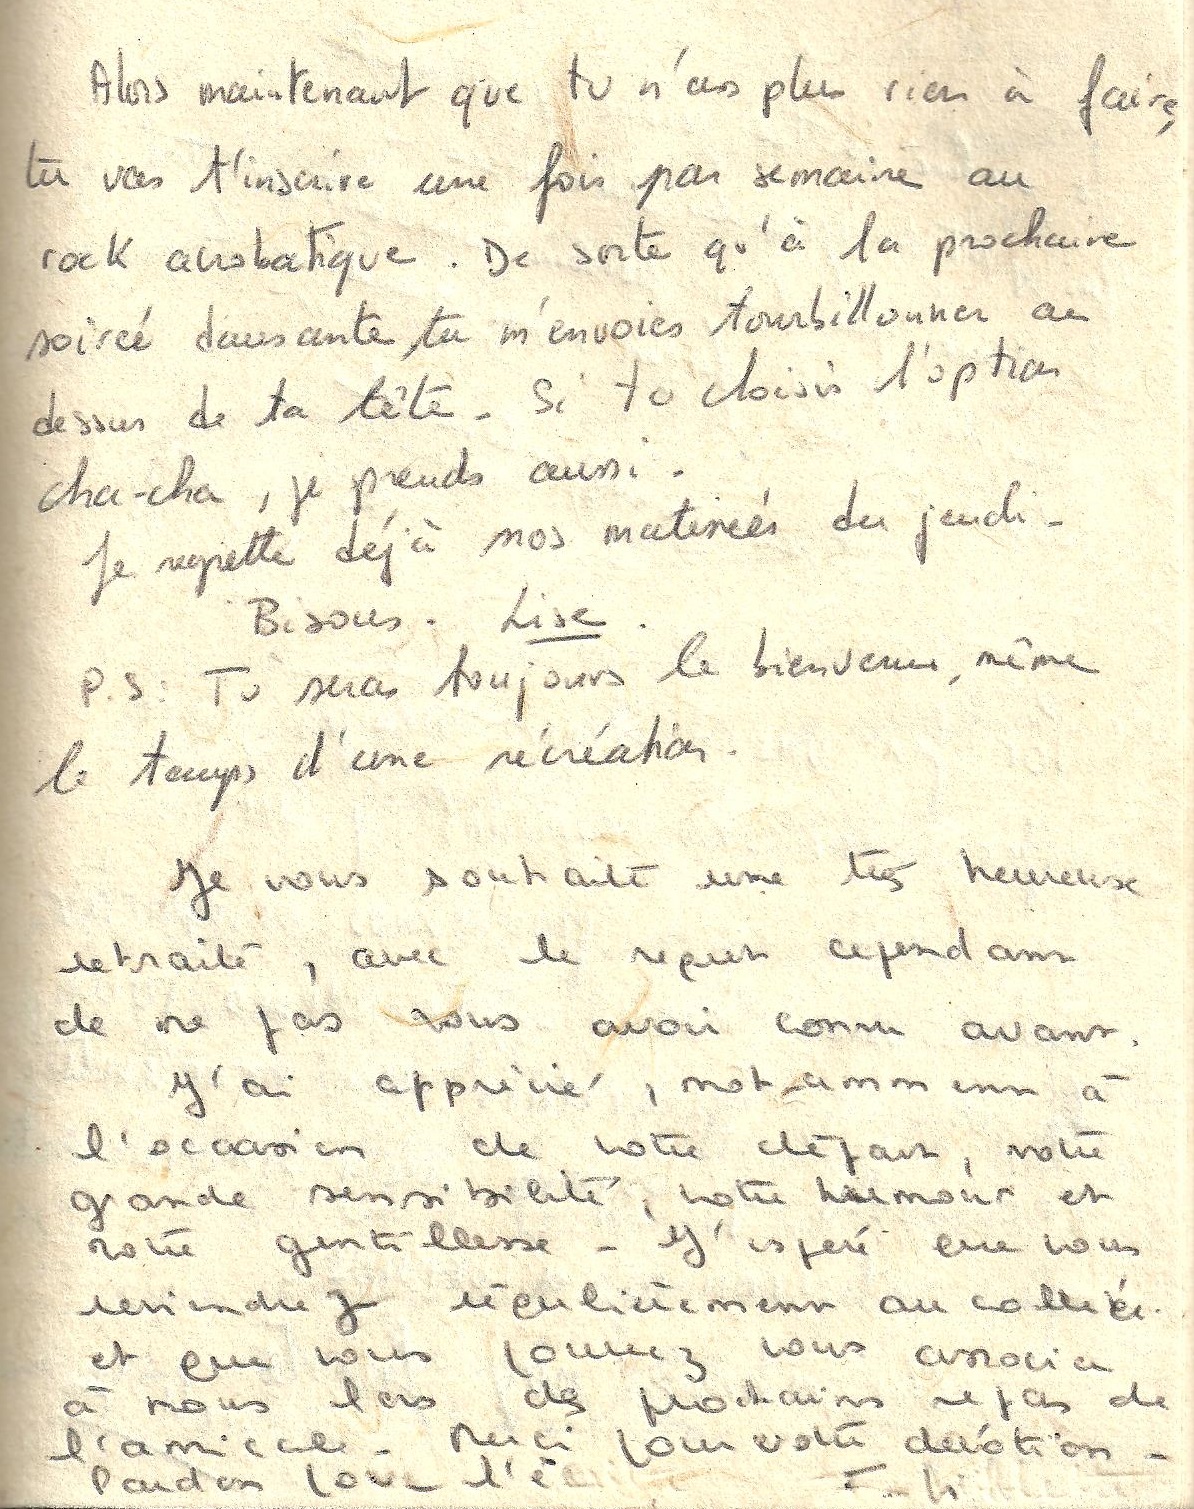 Alors maintenant que tu n'as plus rien à faire,
tu vas t'inscrire une fois par semaine au
rock acrobatique. De sorte qu'à la prochaine
soirée dansante, tu m'envoies tourbillonner au
dessus de ta tête. Si tu choisis l'option
cha-cha, je prends aussi.
Je regrette déjà nos matinées du jeudi.
Bisous. Lise.
P.S: Tu seras toujours le bienvenu, même
le temps d'une récréation.
Je vous souhaite une très heureuse
retraite, avec le regret cependant
de ne pas vous avoir connu avant.
J'ai apprécié, notamment à
l'occasion de votre départ, votre
grande sensibilité, votre humour et
votre gentillesse. J'espère que vous
reviendrez régulièrement au collège
et que vous pourrez vous associer
à nous lors des prochains repas de
l'amicale. Merci pour votre dévotion.
Pardon pour